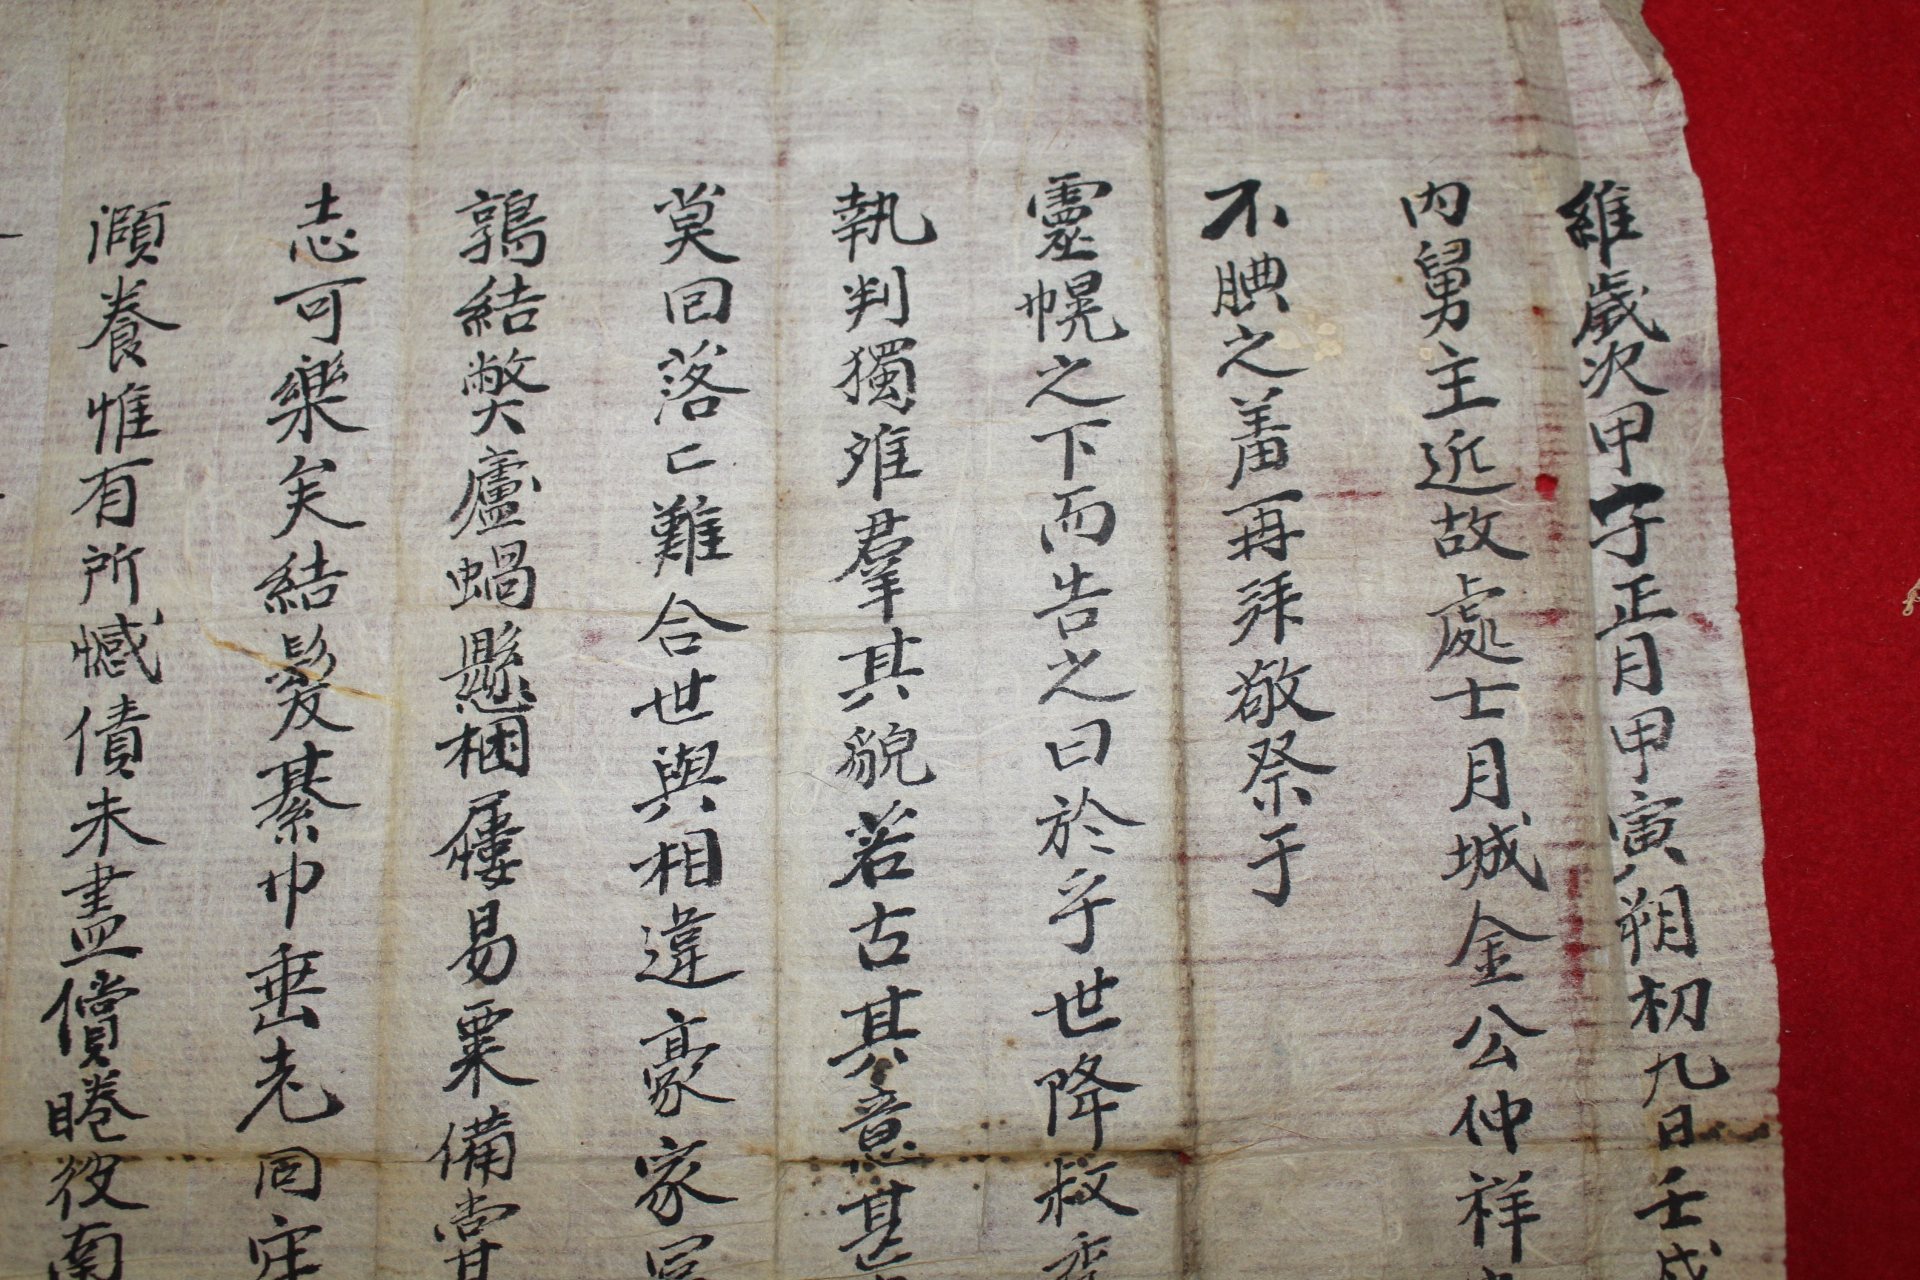 維歲次甲子正月甲寅朔初九日壬戌
內舅主近故處士月城金公仲祥
不腆之羞再拜敬祭于
靈幌之下而告之曰於乎世降叔季
執判獨难羣其貌若古其意甚
莫回落亡難合世與相違豪家
鶉結弊廬蝸懸梱屨易粟備嘗
志可樂矣結髮綦巾垂老同守
灝養惟有所憾債未盡償睠彼南